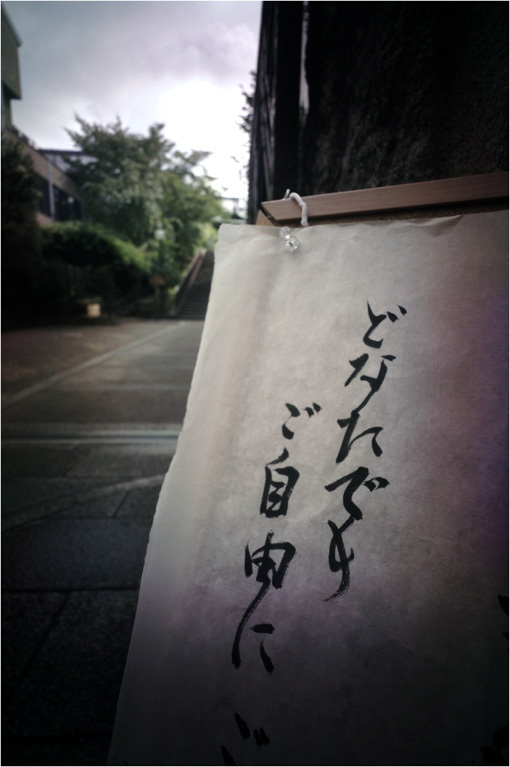 どなたでも
ご自由に